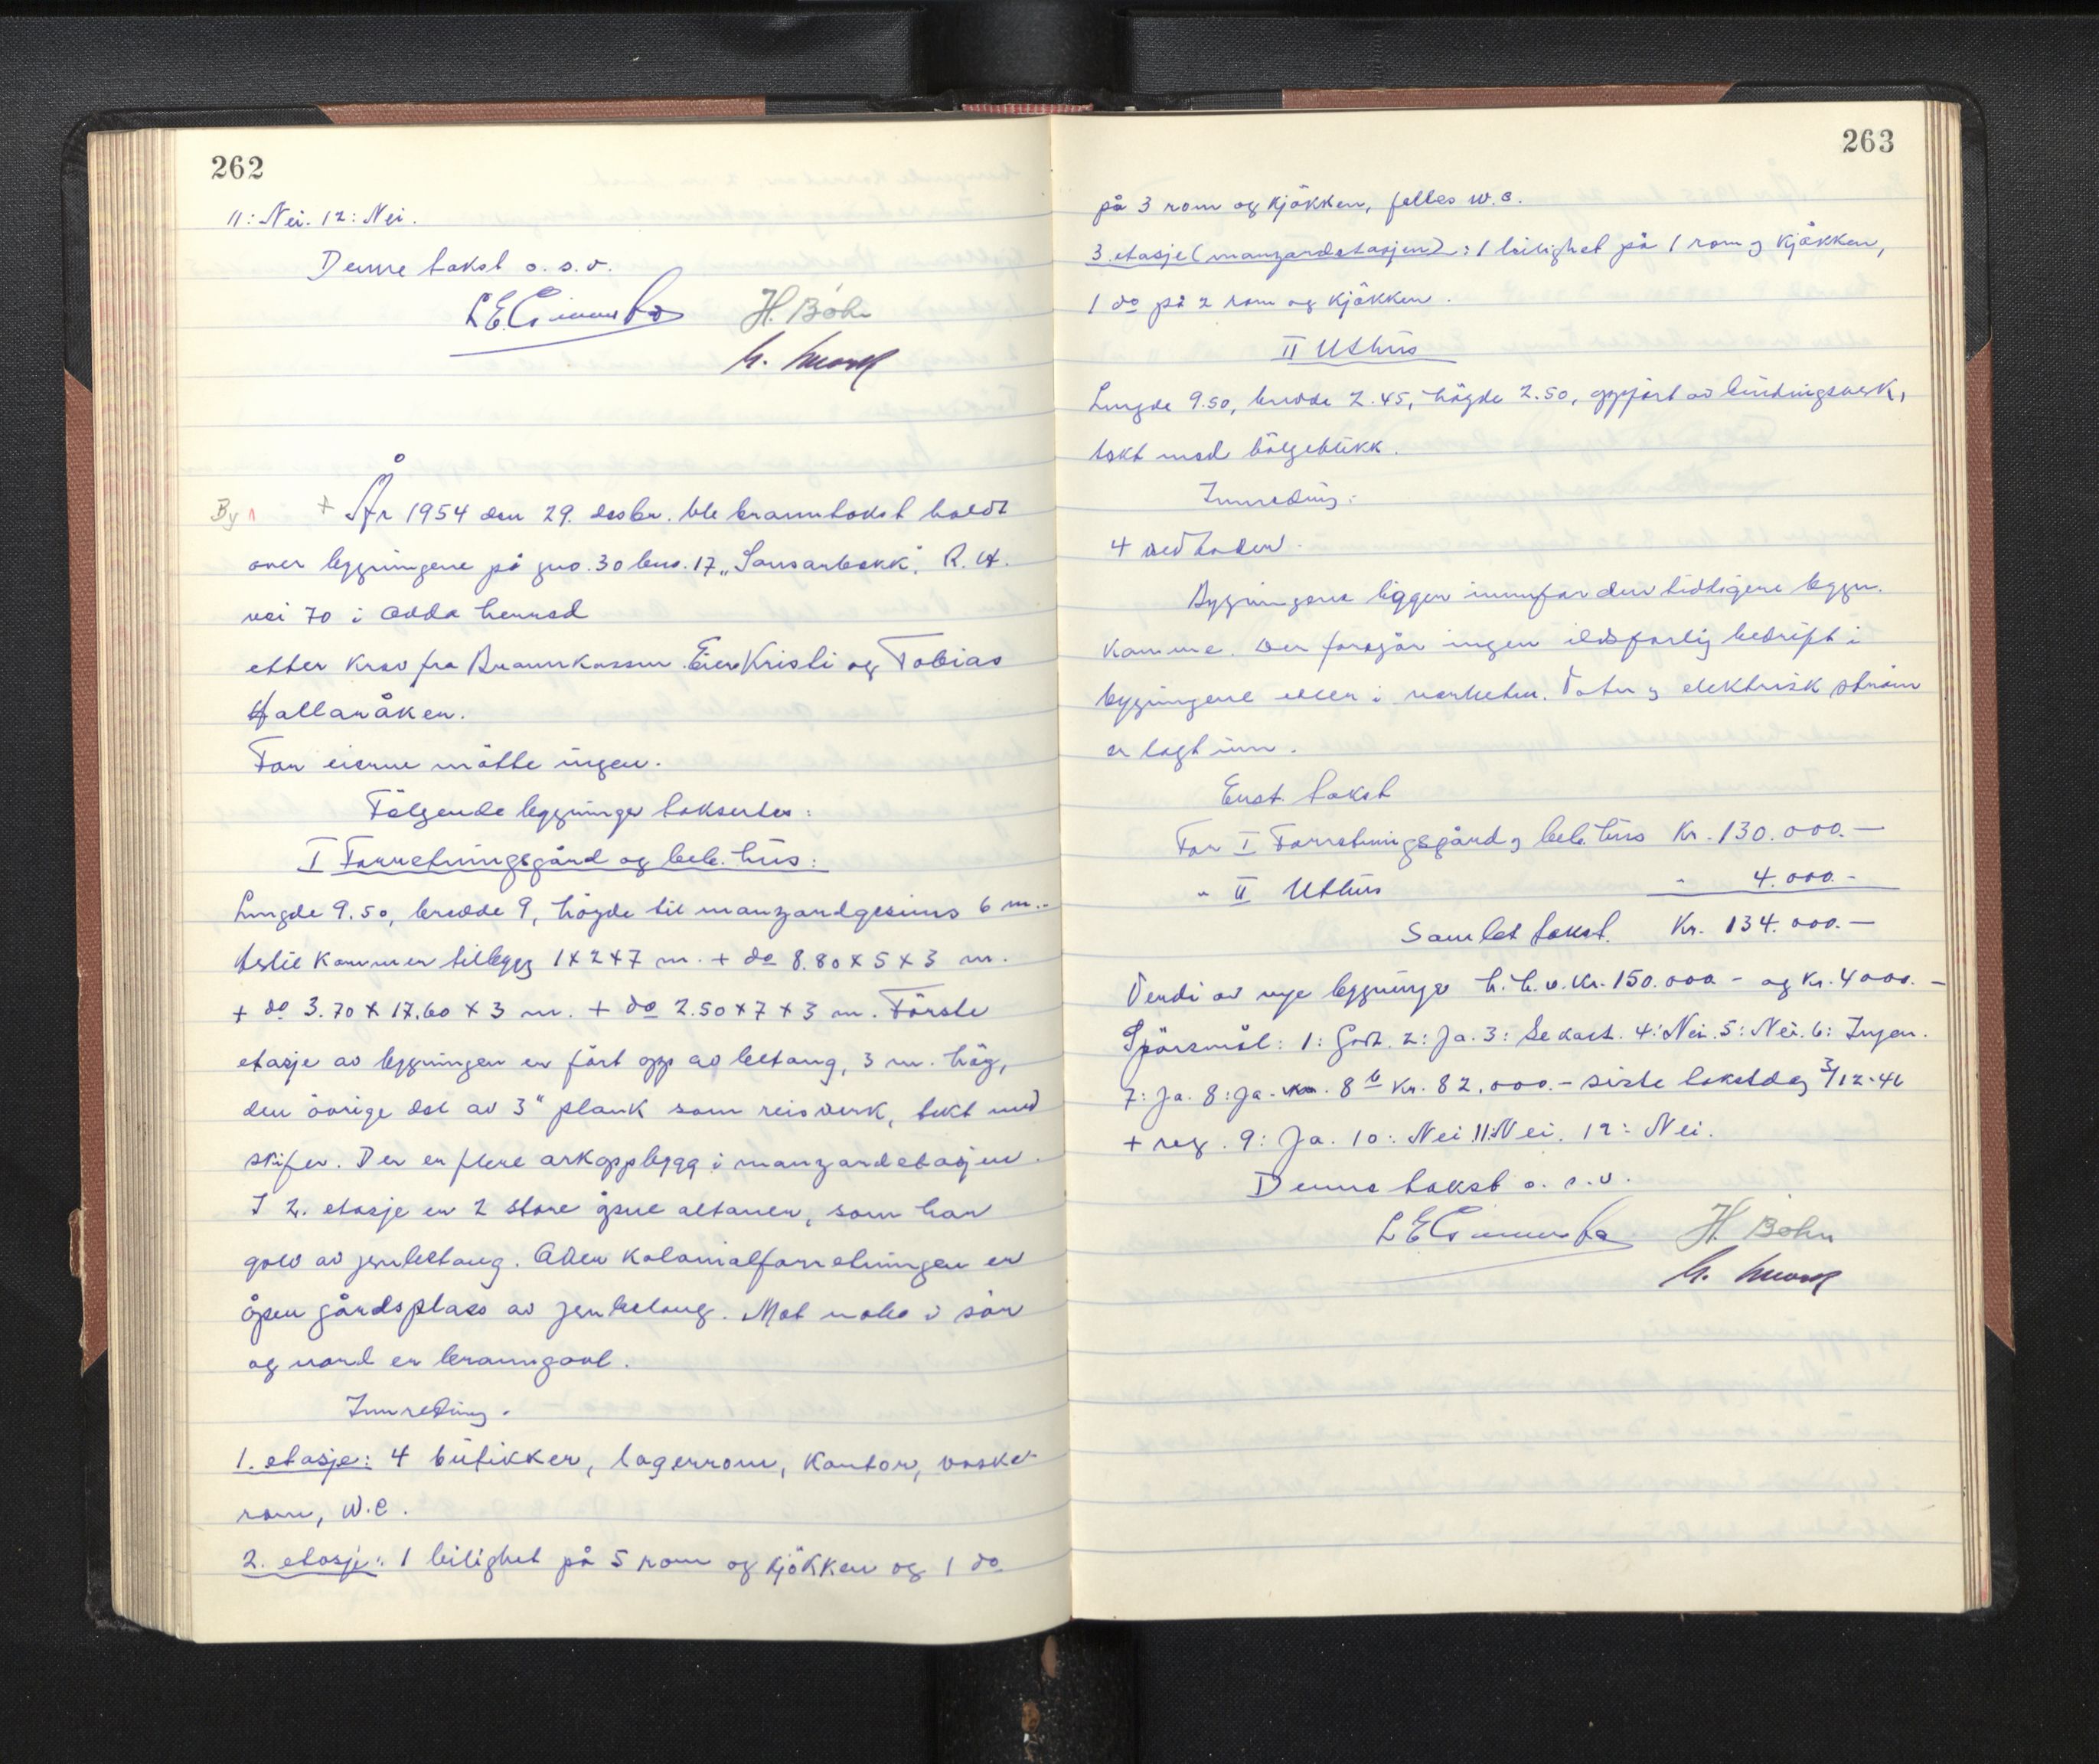 262
11: Nei. 12: Nei.
Denne takst o. s. v.
H. Böhn
By 1 + År 1954 den 29. desbr. ble branntakst holdt
over bygningene på gno. 30 bno. 17 „Sansarbakk". R. H.
vei 70 i Odda herred
etter krav fra Brannkassen. Eier Kristi og Tobias
Hallanåker.
For eierne måtte ingen.
Følgende bygninger takseres:
I Forretningsgård og beb. hus:
Lengde 9.50, bredde 9, høyde til manzardgesims 6 m.
Hertil kommer tilbygg 1 x 2 x 7 m. + do 8.80 x 5 x 3 m.
+ do 3.70 x 17.60 x 3 m. + do 2.50 x 7 x 3 m. Første
etasje av bygningen er ført opp av betong, 3 m. høg,
den øvrige del av 3" plank som reisverk, tekt med
skifer. Der er flere arkoppbygg i manzardetasjen.
I 2. etasje er 2 store åpne altaner, som har
golv av jernbetong. Over kolonialforretningen er
åpen gårdsplass av jernbetong. Mot nabo i sør
og nord er branngavl.
Innreding.
1. etasje: 4 butikker, lagerrom, kontor, vaske-
rom, W.C.
2. etasje: 1 leilighet på 5 rom og kjøkken og 1 do
263
på 3 rom og kjøkken, felles W.C.
3. etasje (manzardetasjen): 1 leilighet på 1 rom og kjøkken,
1 do på 2 rom og kjøkken.
II Uthus
Lengde 9.50, bredde 2.45, høgde 2.50, oppført av bindingsverk,
tekt med bølgeblikk.
Innreding:
4 vedboder.
Bygningene ligger innenfor den tidligere bygn.
komune. Der foregår ingen ildsfarlig bedrift i
bygningene eller i nærheten. Vatn og elektrisk strøm
er lagt inn.
Enst. takst
For I Forretningsgård og beb. hus Kr. 130.000.—
" II Uthus " 4.000.-
Samlet takst. Kr. 134.000.—
Verdi av nye bygninger h.h.v. Kr. 150.000.- og Kr. 4000.-
Spörsmål: 1: Godt. 2: Ja. 3: Se kart. 4: Nei. 5: Nei. 6: Ingen.
7: Ja. 8: Ja. 8 b Kr. 82.000.- siste takstdag 3/12-46
+ reg. 9: Ja. 10: Nei 11: Nei. 12: Nei.
Denne takst o. s. v.
H. Böhn